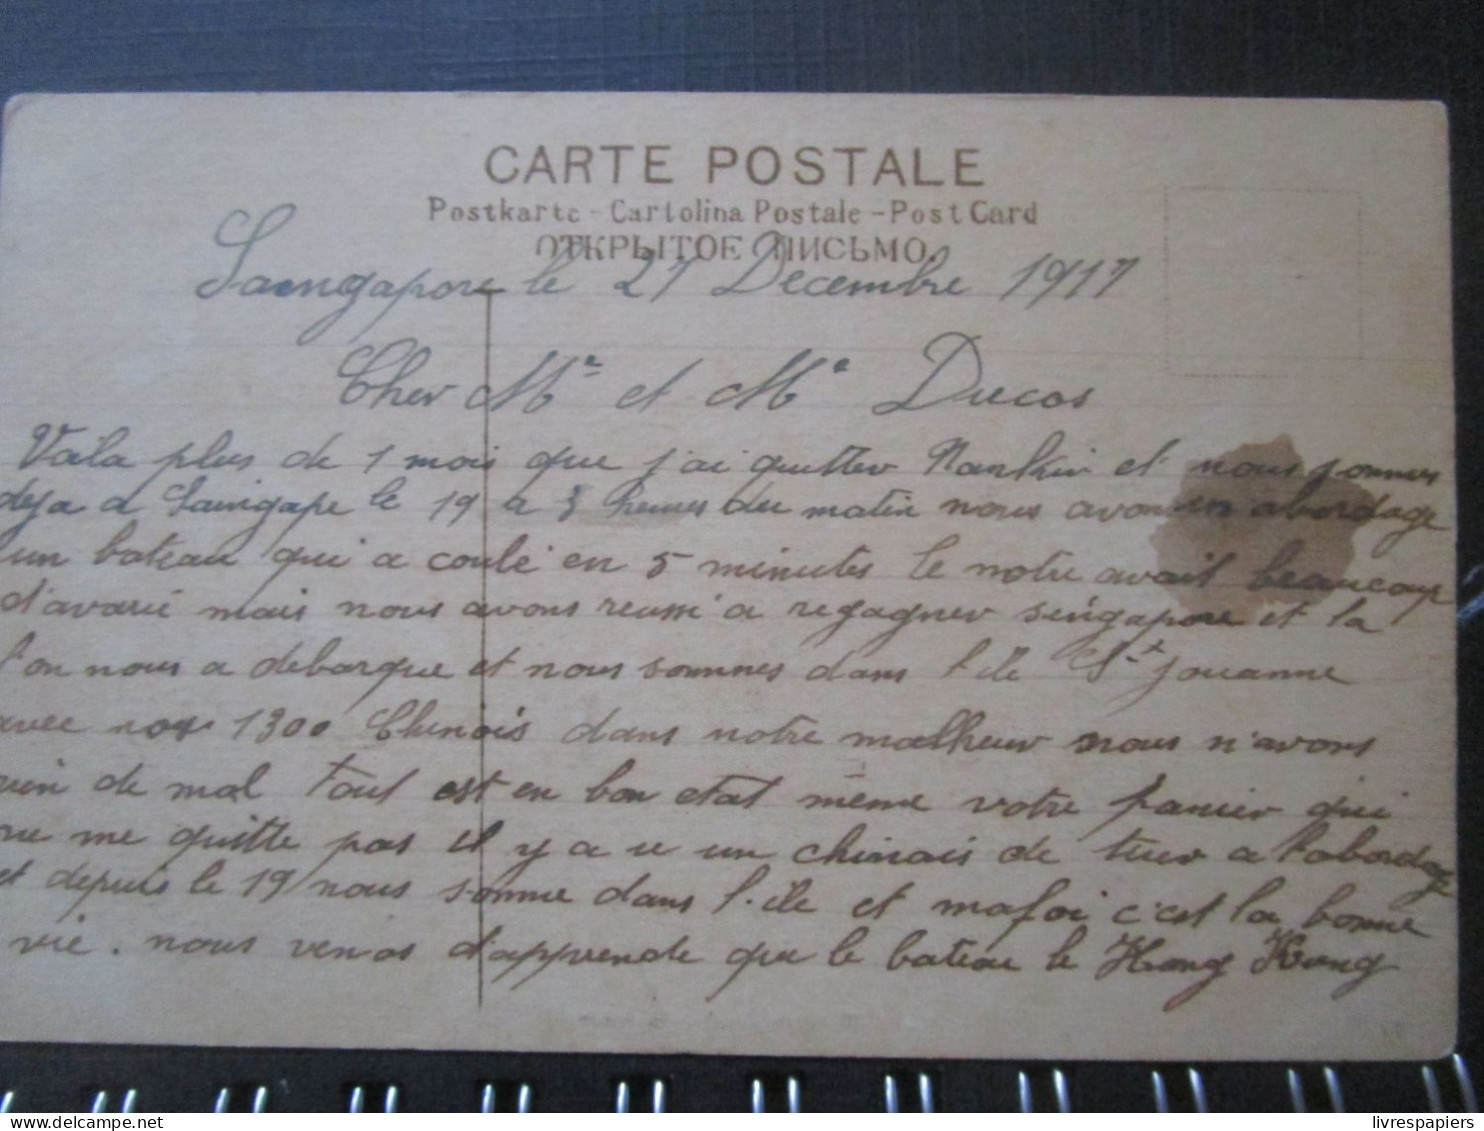 CARTE POSTALE
Postkarte - Cartolina Postale - Post Card
ОТКРЫТОЕ ПИСЬМО.
Saingapore le 21 Decembre 1917
Cher Mr et Me Ducos
Vaila plus de 1 mois que j'ai quitter Nankin et nous sommes
deja a Saingape le 19 a 3 heures du matin nous avons abordage
un bateau qui a coulé en 5 minutes le notre avait beaucoup
d'avarie mais nous avons reussi a regagner séngapore et la
l'on nous a debarque et nous sommes dans l'ile St Jouanne
avec nos 1300 Chinois dans notre malheur nous n'avons
rien de mal tout est en bon etat même votre panier qui
ne me quitte pas il y a u un chinois de tuer a l'abordage
et depuis le 19 nous somme dans l'ile et mafoi c'est la bonne
vie. nous venos d'apprende que le bateau le Hong Kong
livrespapiers